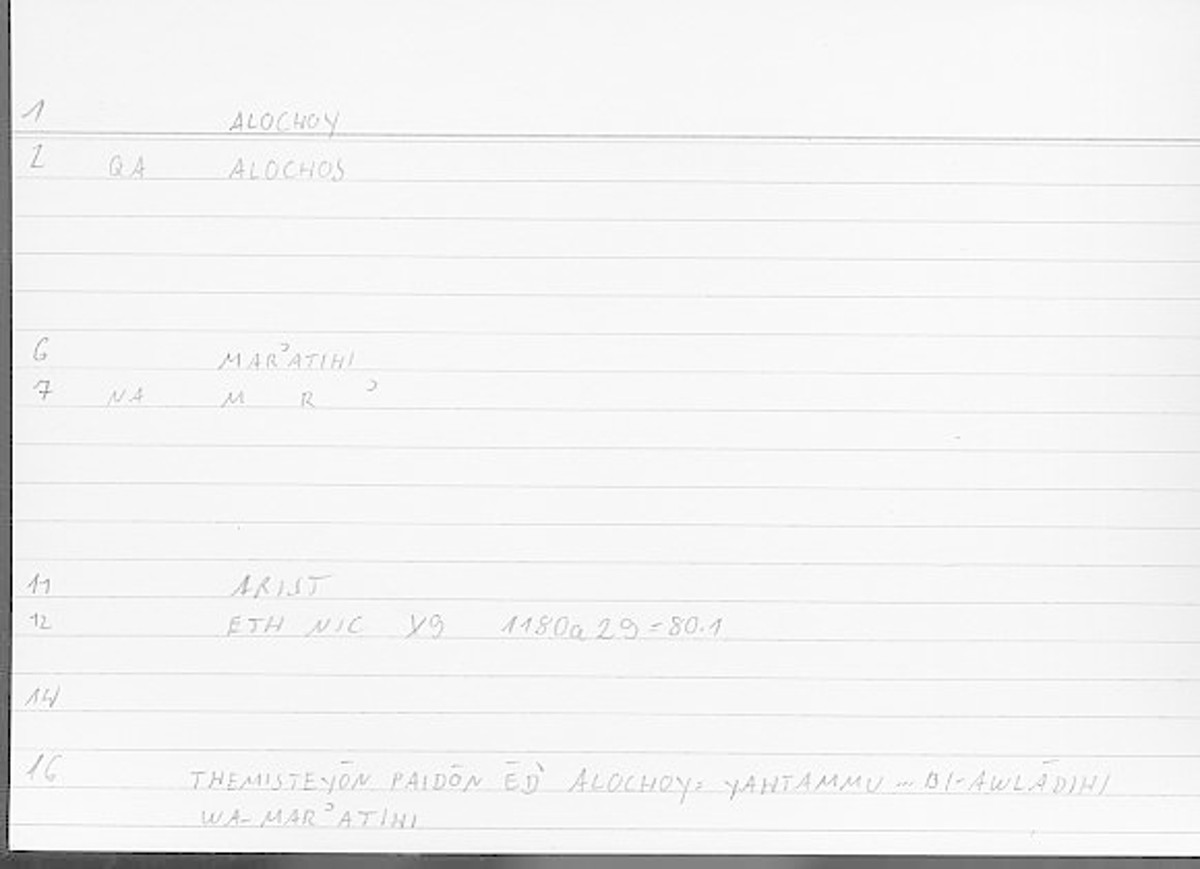 1 ALOCHOY
2 QA ALOCHOS
6 MARʾATIHI
7 NA M R ʾ
11 ARIST
12 ETH NIC X9 1180a29=80.1
14
16 THEMISTEYŌN PAIDŌN ĒD̀ ALOCHOY= YAHTAMMU ... BI-AWLĀDIHI
WA-MARʾATIHI